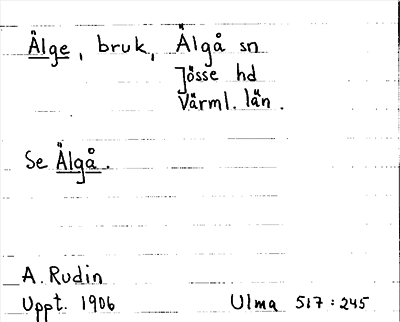 Älge, bruk, Älgå sn
Jösse hd
Värml. län.
Se Älgå.
A. Rudin
Uppt. 1906 Ulma 517:245